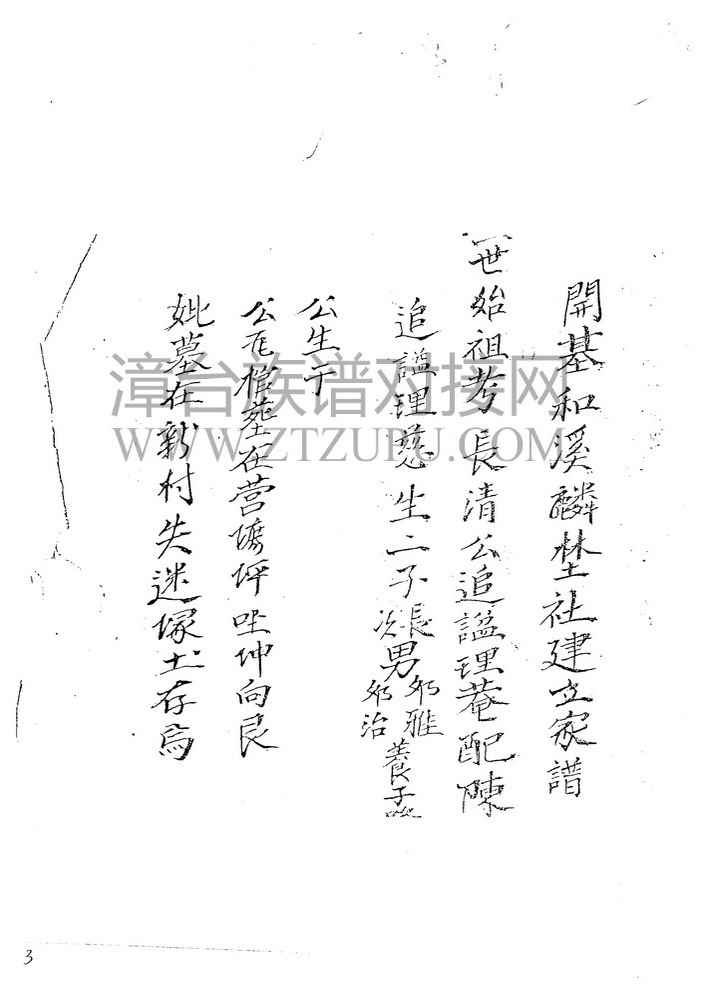 開基和溪麟埜社建立家譜
一世始祖考長清公追謚理菴配陳
追謚理慈生二子長次男邜雅邜治養子
公生于
公在營塘坪坐坤向艮
妣墓在新村失迷塚土存焉
漳台族谱对接网
WWW.ZTZUPU.COM
3